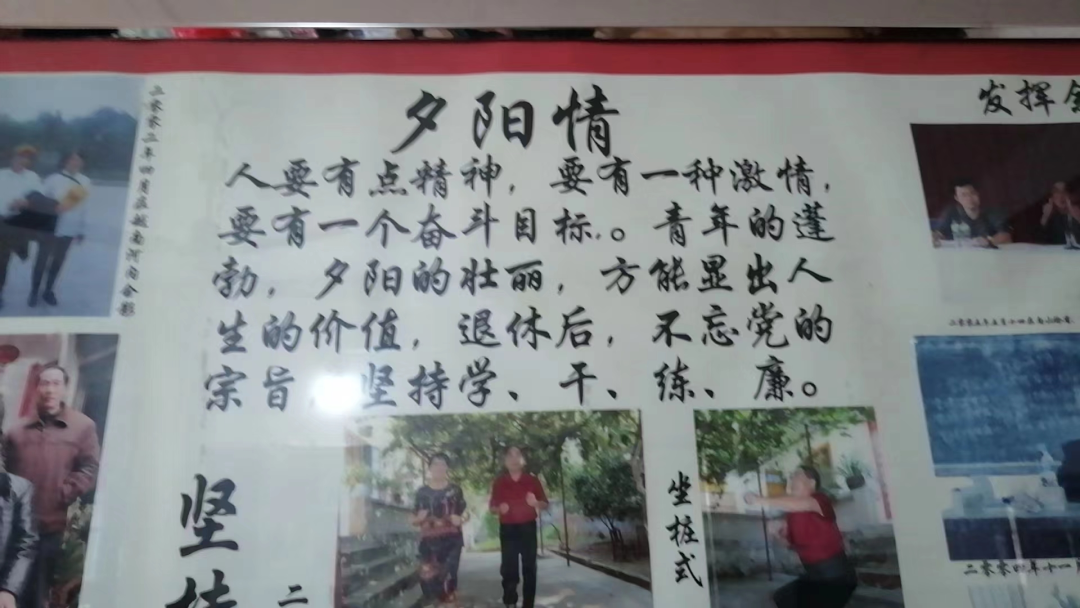 夕阳情
人要有点精神，要有一种激情，
要有一个奋斗目标.。青年的蓬
勃，夕阳的壮丽，方能显出人
生的价值，退休后，不忘党的
宗旨，坚持学、干、练、廉。
二零零二年四月在越南河内合影
发挥
坚
坐桩式
二零零四年十一月
二